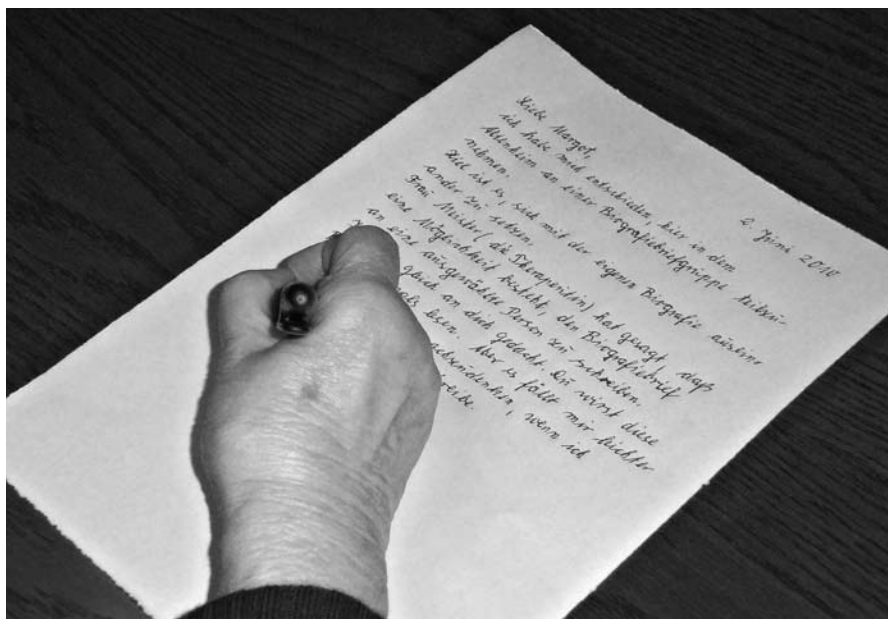 2. Juni 2010
Liebe Margot,
ich habe mich entschieden, hier in dem
Altenheim an einer Biografiebriefgruppe teilzu-
nehmen.
Ziel ist es, sich mit der eigenen Biografie auseine
ander zu setzen.
Frau (die Therapeutin) hat gesagt, daß
eine Möglichkeit besteht, den Biografiebrief
an eine ausgewählte Person zu schreiben.
gleich an dich gedacht. Du wirst diese
lesen. Aber es fällt mir leichter
wenn ich